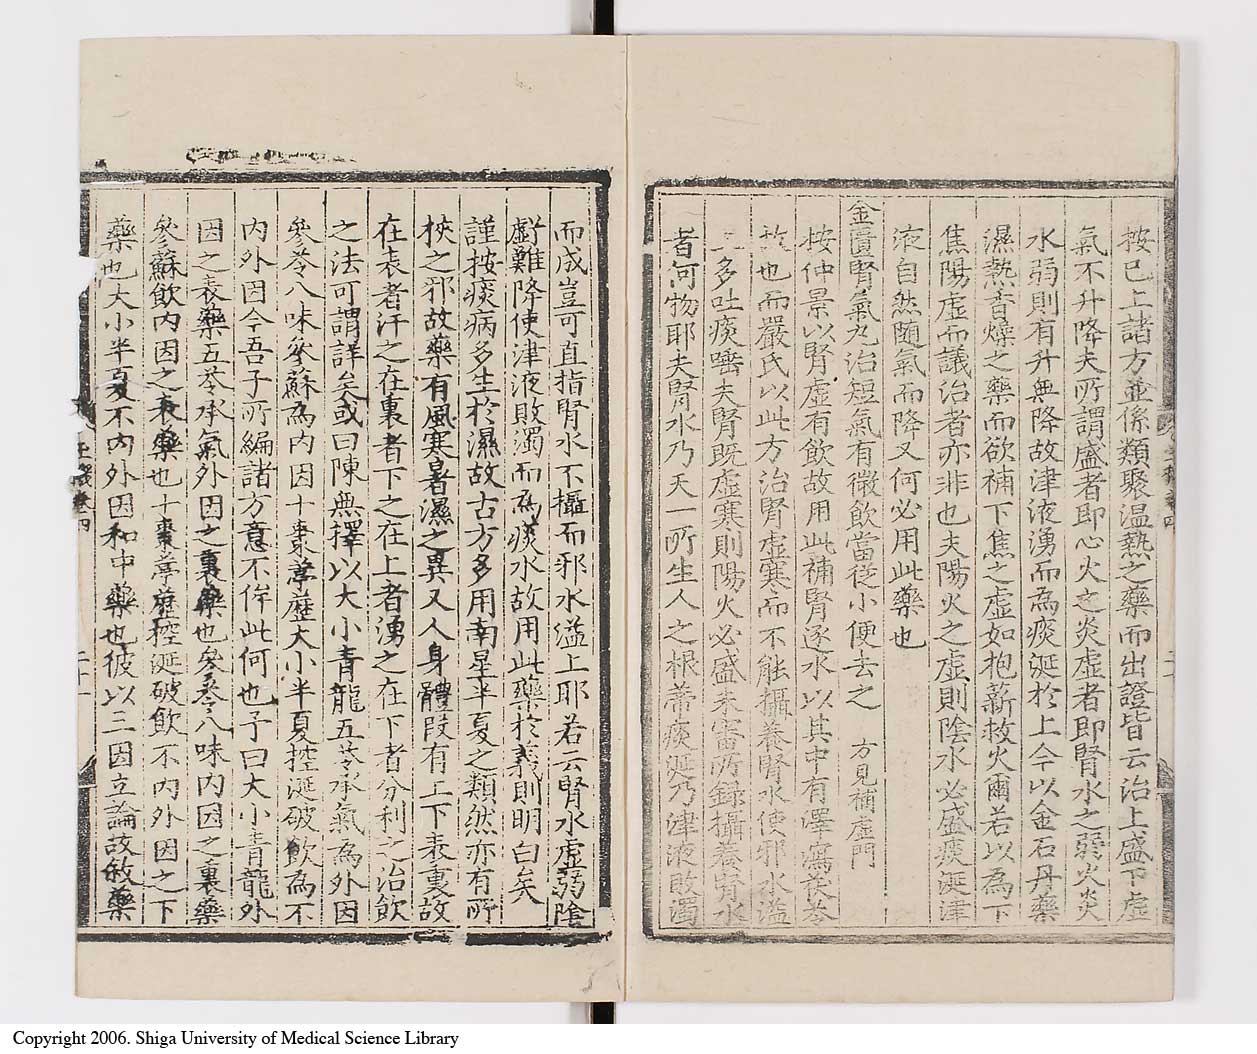 按已上諸方並係類聚温熱之藥而出證皆云治上盛下虚
氣不升降夫所謂盛者即心火之炎虚者即腎水之弱火炎
水弱則有升無降故津液湧而為痰涎於上今以金石丹藥
濕熱香燥之藥而欲補下焦之虚如抱薪救火爾若以為下
焦陽虚而議治者亦非也夫陽火之虚則陰水必盛痰涎津
液自然随氣而降又何必用此藥也
金匱腎氣丸治短氣有微飲當從小便去之 方見補虚門
按仲景以腎虚有飲故用此補腎逐水以其中有澤瀉茯苓
故也而嚴氏以此方治腎虚寒而不能攝養腎水使邪水溢
上多吐痰唾夫腎既虚寒則陽火必盛未審所録攝養腎水
者何物耶夫腎水乃天一所生人之根蒂痰涎乃津液敗濁
而成豈可直指腎水不攝而邪水溢上耶若云腎水虚弱陰
虧難降使津液敗濁而為痰水故用此藥於義則明白矣
謹按痰病多生於濕故古方多用南星半夏之類然亦有所
挾之邪故藥有風寒暑濕之異又人身體段有上下表裏故
在表者汗之在裏者下之在上者湧之在下者分利之治飲
之法可謂詳矣或曰陳無擇以大小青龍五苓承氣為外因
參苓八味參蘇為内因十棗葶藶大小半夏控涎破飲為不
内外因今吾子所編諸方意不侔此何也予曰大小青龍外
因之表藥五苓承氣外因之裏藥也參苓八味内因之裏藥
參蘇飲内因之表藥也十棗葶藶控涎破飲不内外因之下
藥也大小半夏不内外因和中藥也彼以三因立論故敘藥
二十一
Copyright 2006. Shiga University of Medical Science Library